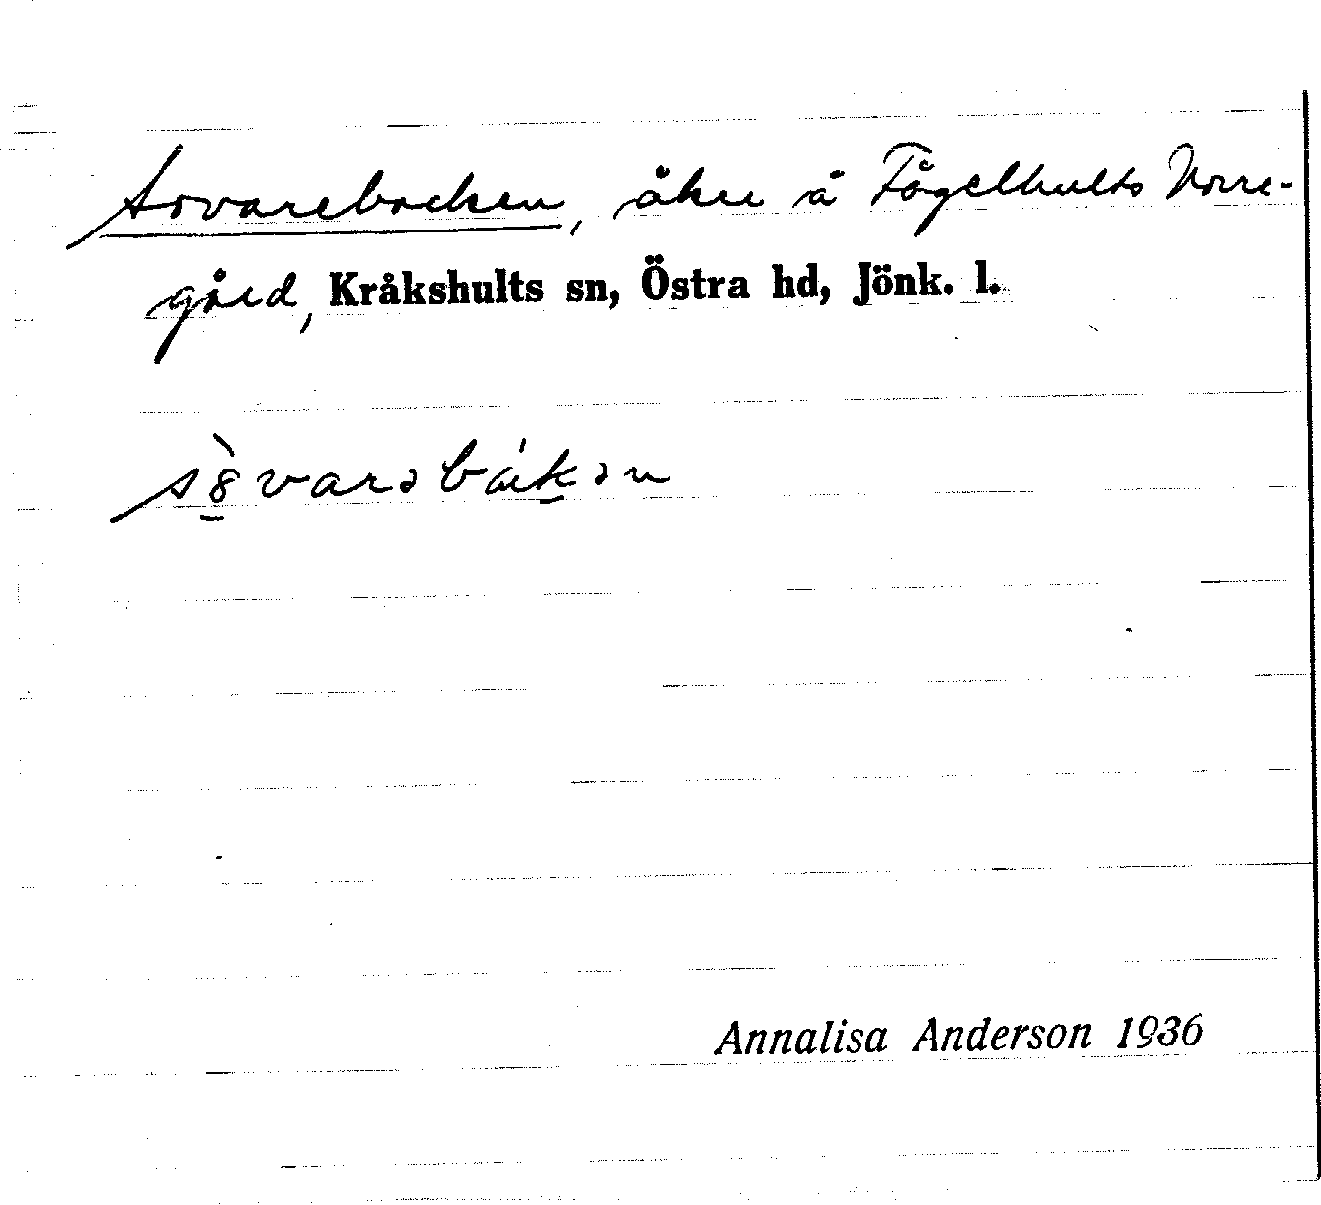 Sovarebacken, åker å Fågelhults Norre-
gård, Kråkshults sn, Östra hd, Jönk. l.
Annalisa Anderson 1936